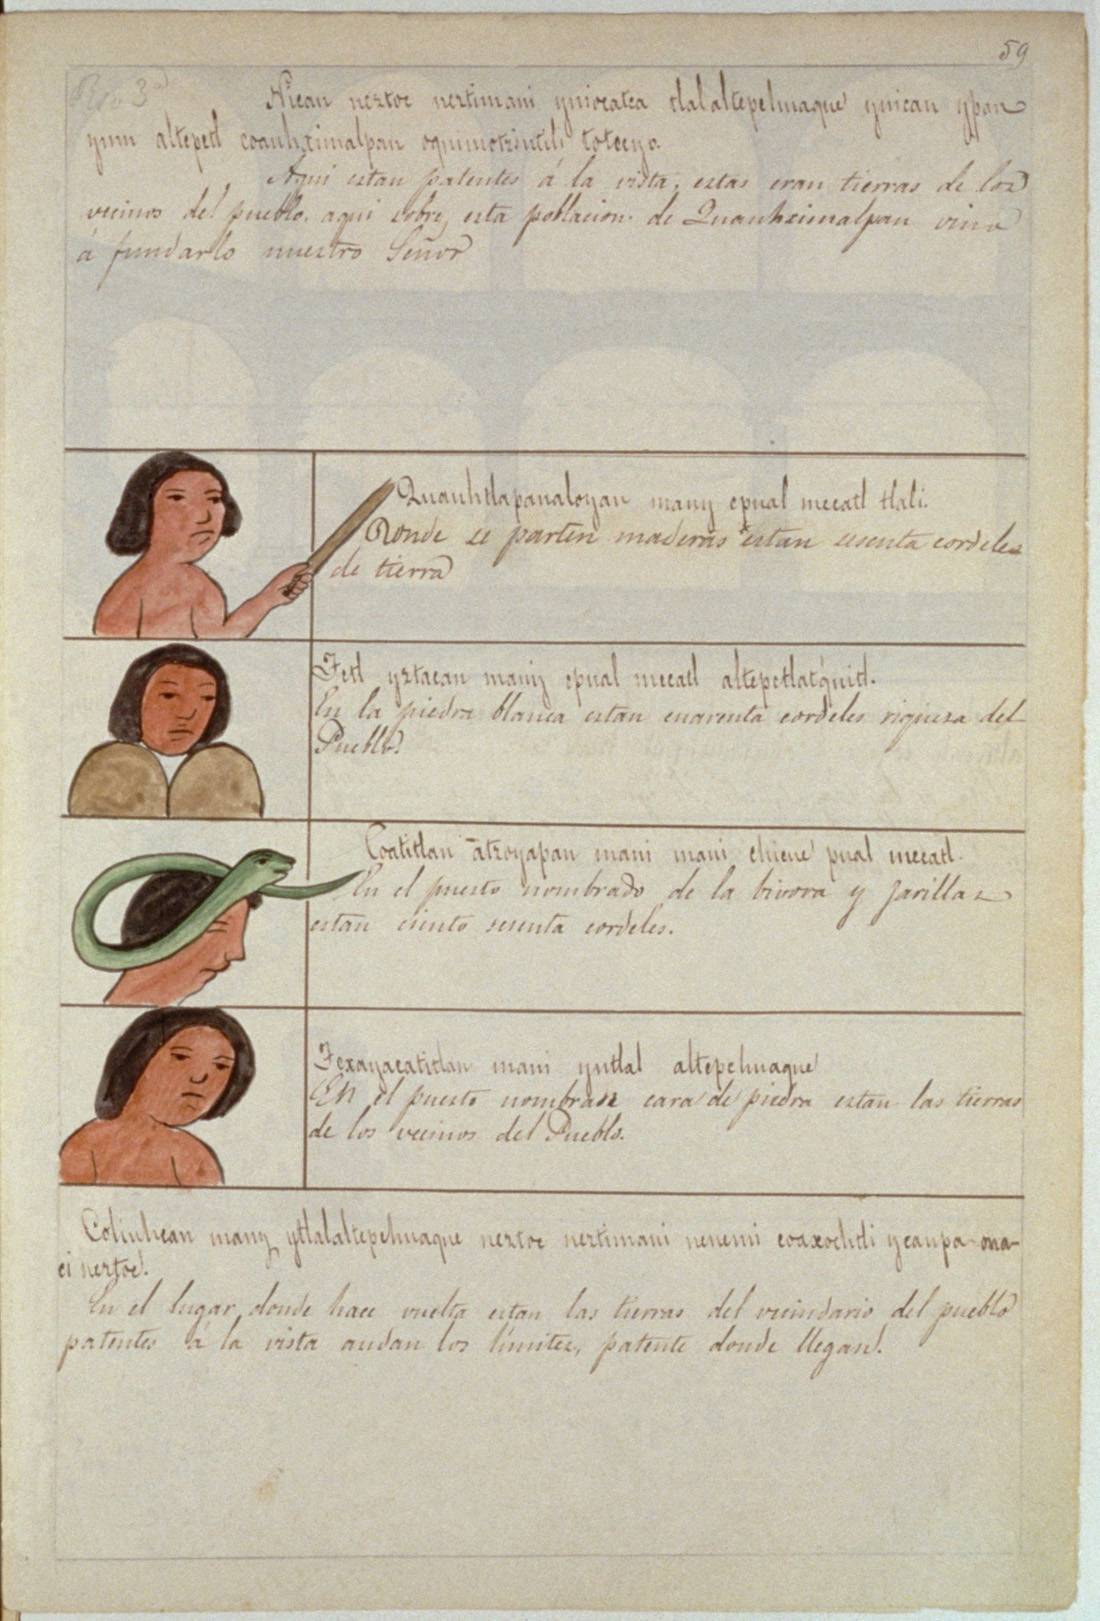 59
Nican neztoc neztimani yniocatca tlalaltepehuaque ynican ypan
ynin altepetl coauhximalpan oquimotzintili totecyo.
Aqui estan patentes á la vista, estas eran tierras de los
vecinos del pueblo, aqui sobre esta poblacion de Quauhximalpan vino
á fundarlo nuestro Señor
Quauhtlapanaloyan many epual mecatl tlali.
Donde se parten maderas estan sesenta cordeles
de tierra
Tetl yztacan many epual mecatl altepetlatquitl.
En la piedra blanca estan cuarenta cordeles riqueza del
Pueblo.
Coatitlan atzoyapan mani mani chicue pual mecatl.
En el puesto nombrado de la bivora y jarillas
estan ciento sesenta cordeles.
Texayacatitlan mani yntlal altepehuaque
En el puesto cara de piedra estan las tierras
de los vecinos del Pueblo.
Coliuhcan many ytlalaltepehuaque neztoc neztimani nenemi coaxochtli ycanpa ona-
ci neztoc.
En el lugar donde hace vuelta estan las tierras del vecindario del pueblo
patentes á la vista andan los límites, patente donde llegan.